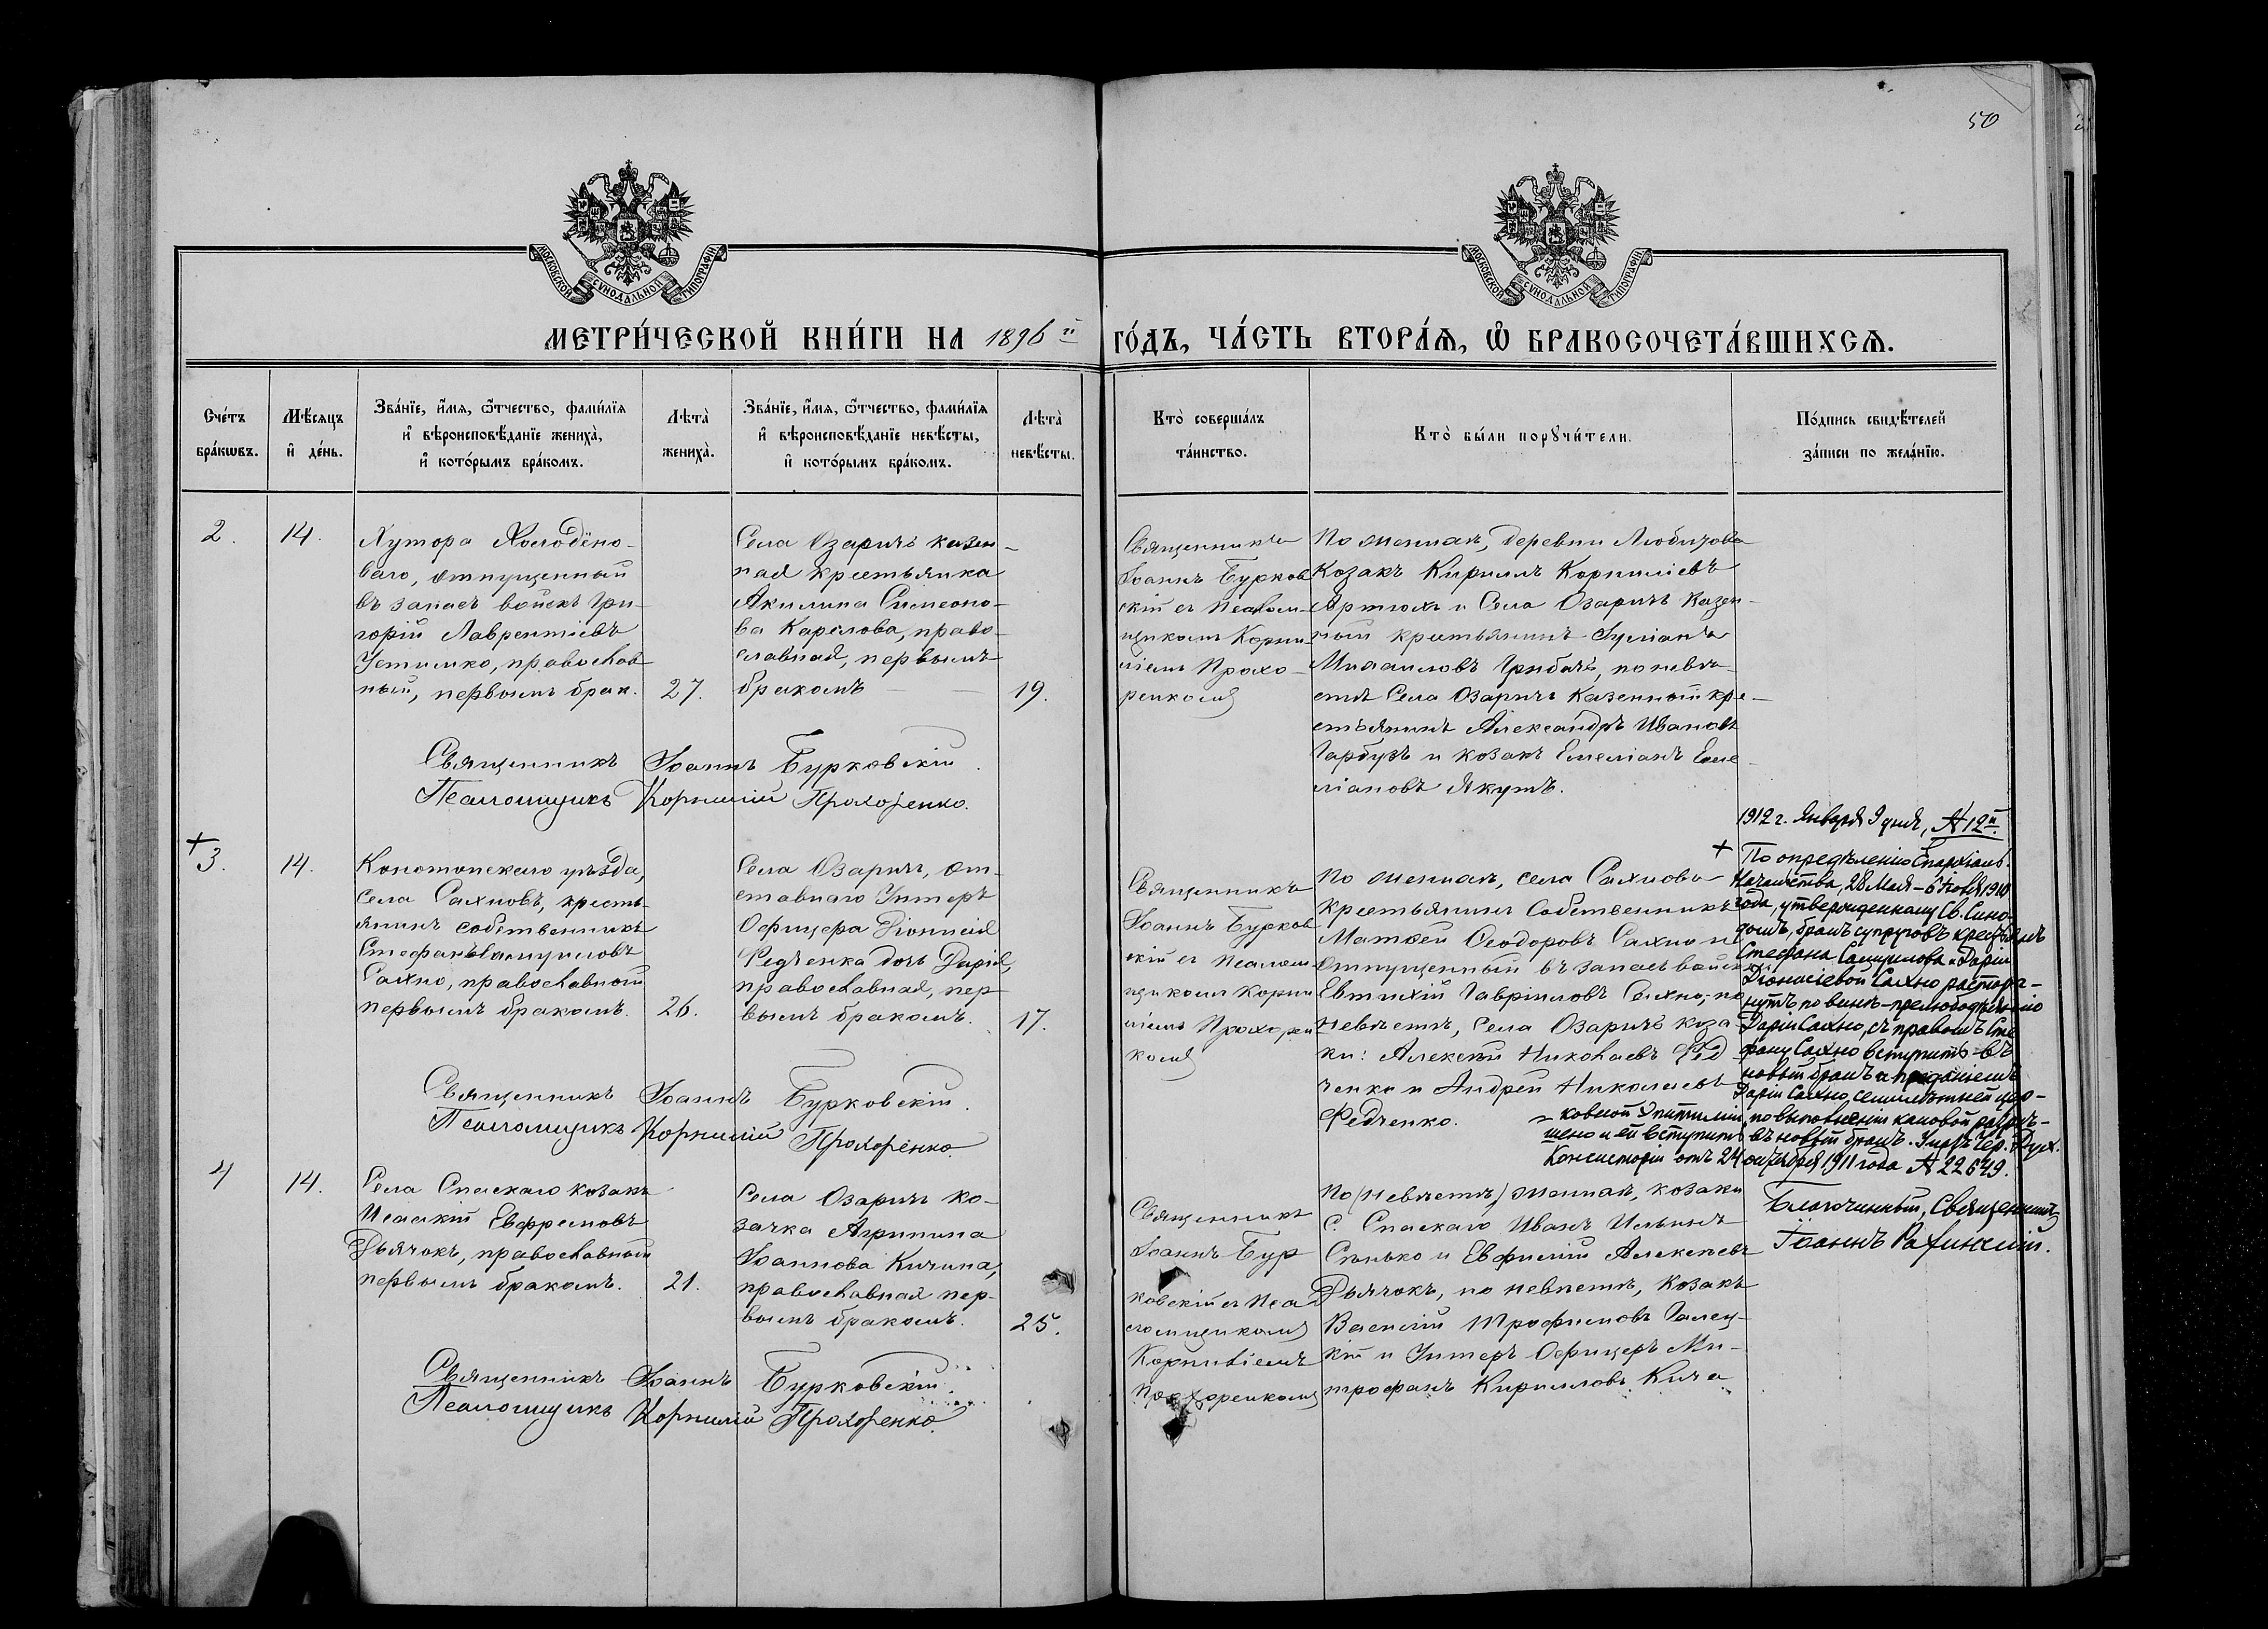 50
МОСКОВСКОЙ СѴНОДАЛЬНОЙ ТИПОГРАФІИ
МОСКОВСКОЙ СѴНОДАЛЬНОЙ ТИПОГРАФІИ
МЕТРИ́ЧЕСКОЙ КНИ́ГИ НА 1896й ГО́ДЪ, ЧА́СТЬ ВТОРА́Ѧ, Ѽ БРАКОСОЧЕТА́ВШИХСѦ.
Сче́тъ
бра́кѡвъ.
Мѣ́сяцъ
и҆ де́нь.
Зва́нїе, и҆́мѧ, ѻ҆́тчество, фами́лїѧ
и҆ вѣроисповѣ́данїе жениха̀,
и҆ кото́рымъ бра́комъ.
Лѣта̀
жениха̀.
Зва́нїе, и҆́мѧ, ѻ҆́тчество, фами́лїѧ
и҆ вѣроисповѣ́данїе невѣ́сты,
и҆ кото́рымъ бра́комъ.
Лѣта̀
невѣ́сты.
Кто̀ соверша́лъ
та́инство.
Кто̀ бы́ли порꙋчи́тели.
По́дпись свидѣ́телей
за́писи по жела́нїю.
2.
14.
Хутора Холодёно-
ваго, отпущенный
въ запасъ войскъ Гри-
горій Лаврентіевъ
Устимко, православ
ный, первымъ брак.
27.
Села Озаричъ казен-
ная крестьянка
Акилина Симеоно-
ва Карслова, право-
славная, первымъ
бракомъ
19.
Священникъ
Іоаннъ Бурков
скій съ Псалом-
щикомъ Корни
ліемъ Прохо-
ренкомъ
По женихъ, деревни Любитова
Козакъ Кириллъ Корниліевъ
Артюхъ и Села Озаричъ Казен-
ный крестьянинъ Іуліанъ
Михаиловъ Грибачъ, по невѣ-
стѣ Села Озаричъ Казенный кре-
стьянинъ Александръ Ивановъ
Гарбузъ и козакъ Емеліанъ Еме-
ліановъ Якутъ.
Священникъ Іоаннъ Бурковскій.
Псаломщикъ Корнилій Прохоренко.
+
3.
14.
Конотопскаго уѣзда,
села Сахновъ, кресть-
янинъ собственникъ
Стефанъ Самуиловъ
Сахно, православный
первымъ бракомъ.
26.
Села Озаричъ, от-
ставнаго Унтеръ
Офицера Діонисія
Федченка дочь Дарія,
православная, пер
вымъ бракомъ.
17.
Священникъ
Іоаннъ Бурков
скій съ Псалом
щикомъ Корни
ліемъ Прохорен
комъ
По женихъ, села Сахновъ
крестьянинъ Собственникъ
Матѳей Ѳеодоровъ Сахно и
отпущенный въ запасъ войскъ
Евтихій Гавріиловъ Сахно, по
невѣстѣ, Села Озаричъ коза-
ки: Алексѣй Николаевъ Фед
ченко и Андрей Николаевъ
Федченко.
1912 г. Января 9 дня, № 12й.
+ По опредѣленію Епархіаль.
Начальства, 28 Мая – 6 Іюня 1910
года, утвержденному Св. Сино-
домъ, бракъ супруговъ крестьянъ
Стефана Самуилова и Даріи
Діонисіевой Сахно расторг-
нутъ по винѣ-прелюбодѣянію
Даріи Сахно, съ правомъ Сте
фану Сахно вступить въ
новый бракъ и преданіемъ
Даріи Сахно, семилѣтней цер-
ковной Эпитиміи, по выполненіи каковой разрѣ-
шено и ей вступить въ новый бракъ. Указъ Чер. Дух.
Консисторіи отъ 24 октября 1911 года № 22649.
Благочинный, Священникъ
Іоаннъ
Священникъ Іоаннъ Бурковскій.
Псаломщикъ Корнилій Прохоренко
4
14.
Села Спаскаго козакъ
Исаакій Евфремовъ
Дьячокъ, православный
первымъ бракомъ.
21.
Села Озаричъ ко-
зачка Агрипина
Іоаннова Кичина,
православная пер-
вымъ бракомъ.
25.
Священникъ
Іоаннъ Бур
ковскій съ Пса
ломщикомъ
Корниліемъ
Прохоренкомъ
По (невѣстѣ) женихъ, козаки
С. Спаскаго Иванъ Ильинъ
Сѣнько и Евфимій Алексѣевъ
Дьячокъ, по невѣстѣ, Козакъ
Василій Трофимовъ Галец-
кій и Унтеръ Офицеръ Ми-
трофанъ Кирилловъ Кича
Священникъ Іоаннъ Бурковскій.
Псаломщикъ Корнилій Прохоренко.